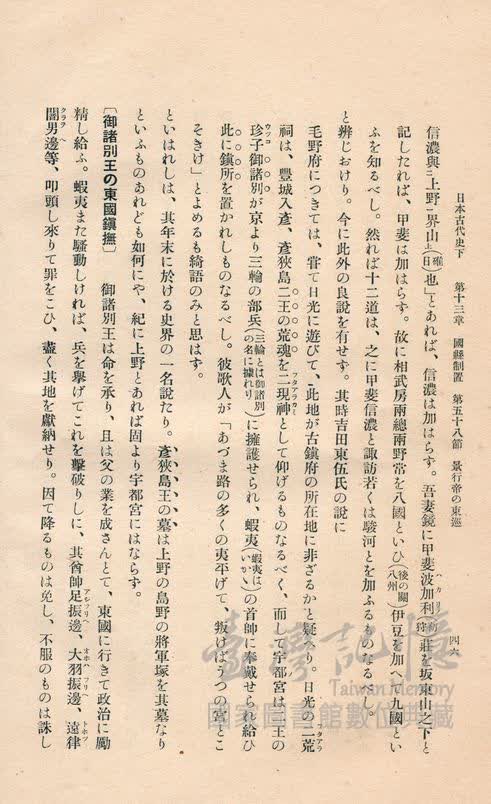 日本古代史下　第十三章　國縣制置　第五十八節　景行帝の東巡　四六
信濃與ニ上野ノ界山ト(確日)也」とあれば、信濃は加はらす。吾妻鏡に甲斐波加利莊を坂東山之下と
記したれば、甲斐は加はらす。故に相武房兩總兩野常を八國といひ(後の關八州)伊豆を加へて九國とい
ふを知るべし。然れば十二道は、之に甲斐信濃と諏訪若くは駿河とを加ふるものなるべし。
と辨じおけり。今に此外の良說を有せす。其時吉田東伍氏の說に
毛野府につきては、嘗て日光に遊びて、此地が古鎮府の所在地に非ざるかと疑へり。日光の二荒
祠は、豐城入彥、彥狹島二王の荒魂を二現神として仰げるものなるべく、而して宇都宮は二王の
珍子御諸別が京より三輪の部兵(三輪とは御諸別の名に據れり)に擁護せられ、蝦夷(蝦夷はいかい)の首帥に奉戴せられ給ひ
此に鎮所を置かれしものなるべし。彼歌人が「あづま路の多くの夷平げて、叛けばうつの宮とこ
そきけ」とよめるも綺語のみと思はす。
といはれしは、其年末に於ける史界の一名說たり。彥狹島王の墓は上野の島野の將軍塚を其墓なり
といふものあれども如何にや、紀に上野とあれば固より宇都宮にはならす。
〔御諸別王の東國鎮撫〕　御諸別王は命を承り、且は父の業を成さんとて、東國に行きて政治に勵
精し給ふ。蝦夷また騷動しければ、兵を擧げてこれを擊破りしに、其酋帥足振邊、大羽振邊、遠律
闇男邊等、叩頭し來りて罪をこひ、盡く其地を獻納せり。因て降るものは免し、不服のものは誅し
臺灣記憶
Taiwan Memory
國家圖書館數位典藏